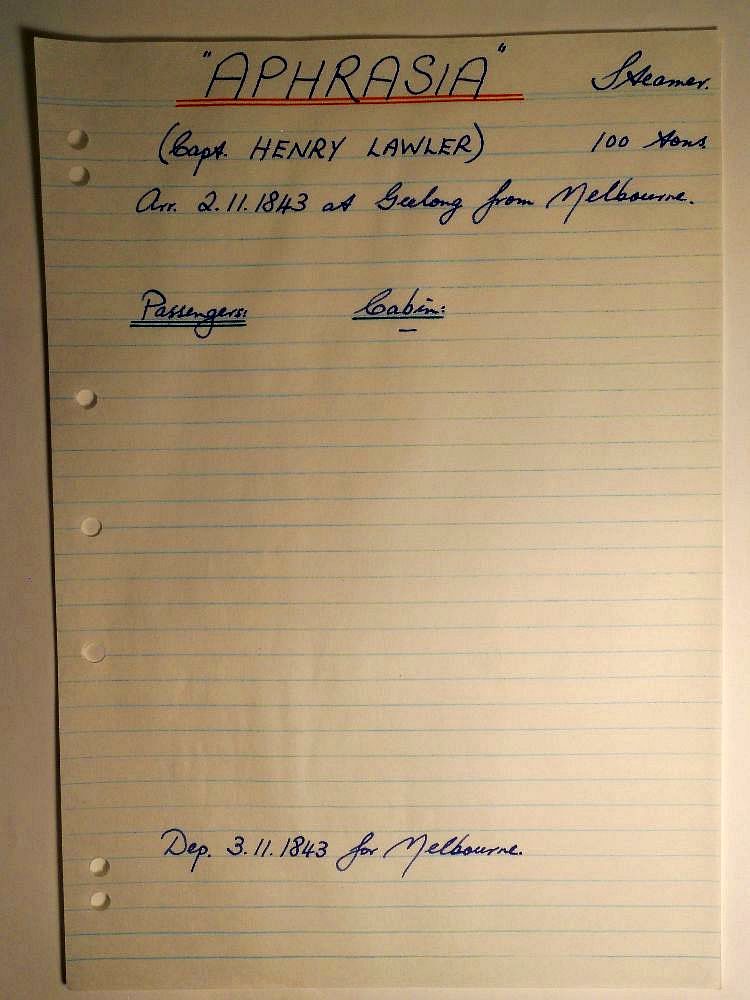 "APHRASIA" Steamer.
(Capt. HENRY LAWLER) 100 tons.
Arr. 2.11.1843 at Geelong from Melbourne.
Passengers: Cabin:
—
Dep. 3.11.1843 for Melbourne.